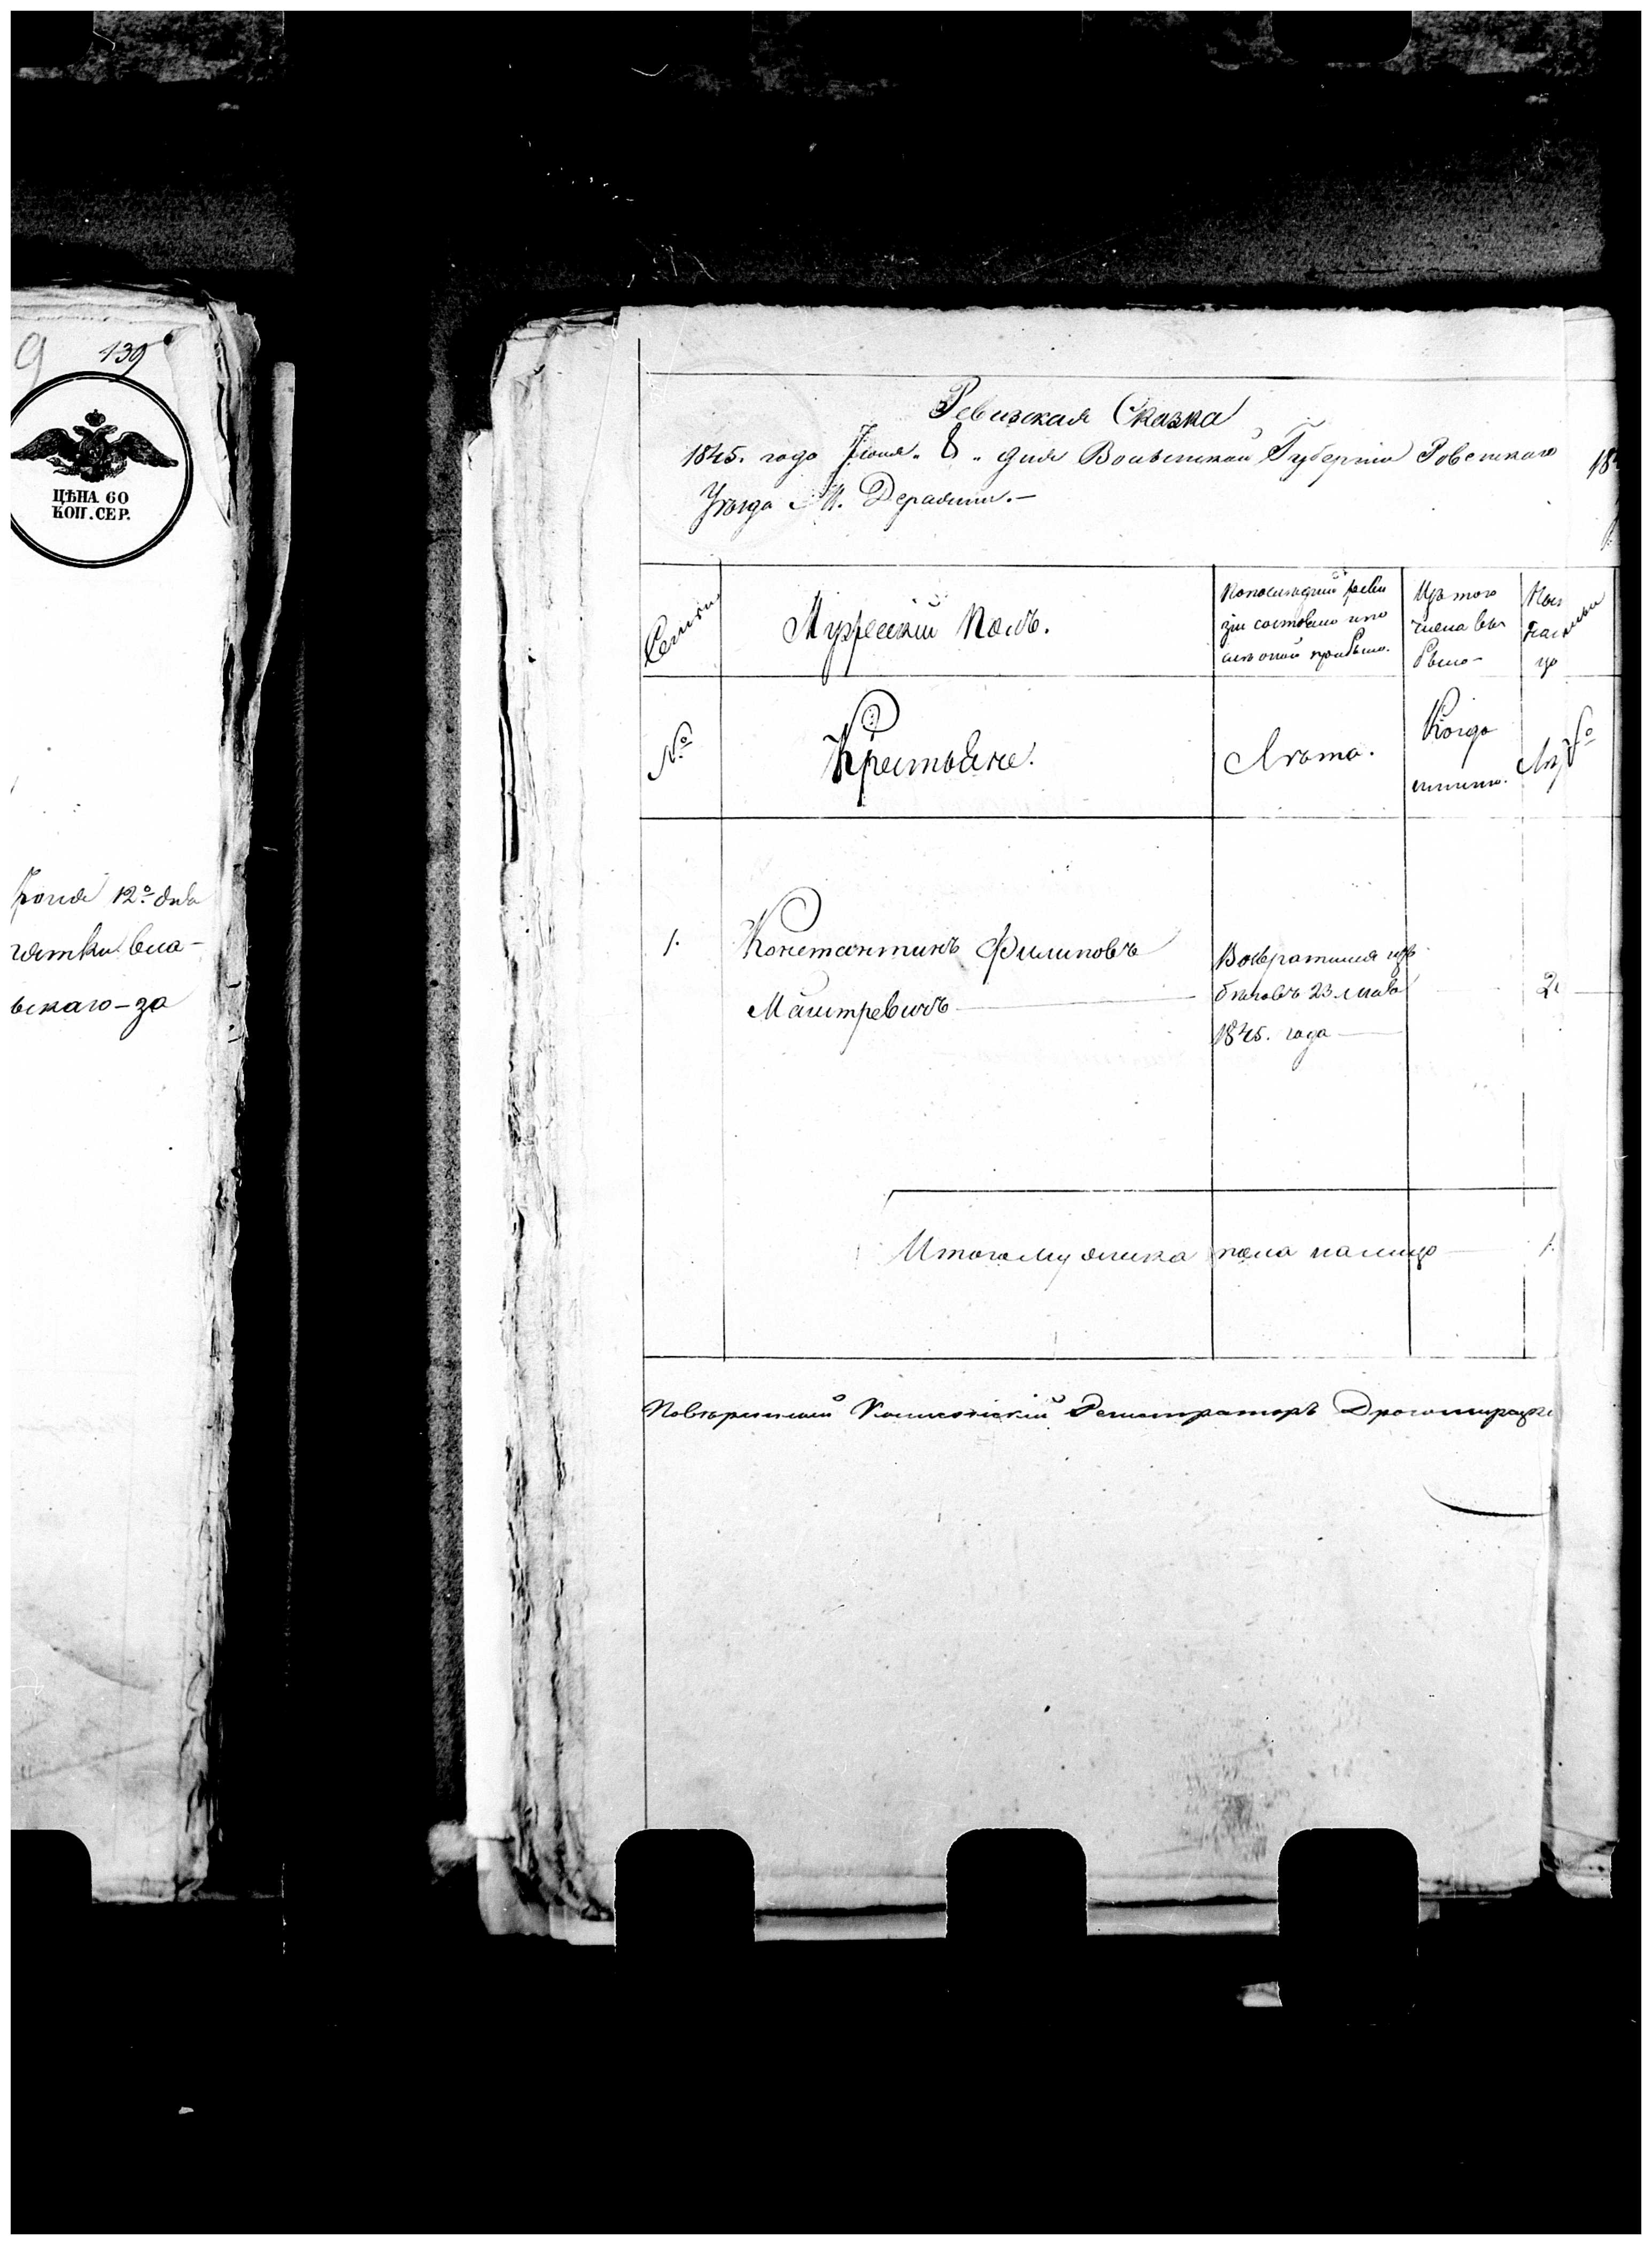 9 139
ЦѢНА 60
КОП. СЕР.
Іюня 12º дня
вла-
скаго-за
Ревизская Сказка
1845. года Іюня „ 8 „ дня Волынской Губерніи Ровенскаго
Уѣзда М. Деражни.-
Семьи
Мужескій Полъ.
По послѣдней реви
зіи состояло и по
слѣ оной прибыло.
Изъ того
числа вы
было-
Ныне
на ли
цо
№
Крестьяне.
Лѣта.
Когда
именно.
Лѣ
1.
Константинъ Филиповъ
Маистревичъ
Возвратился изъ
бѣговъ 23 мая
1845. года
Итого мужеска пола налицо 1.
Повѣренный Колежскій Регистраторъ